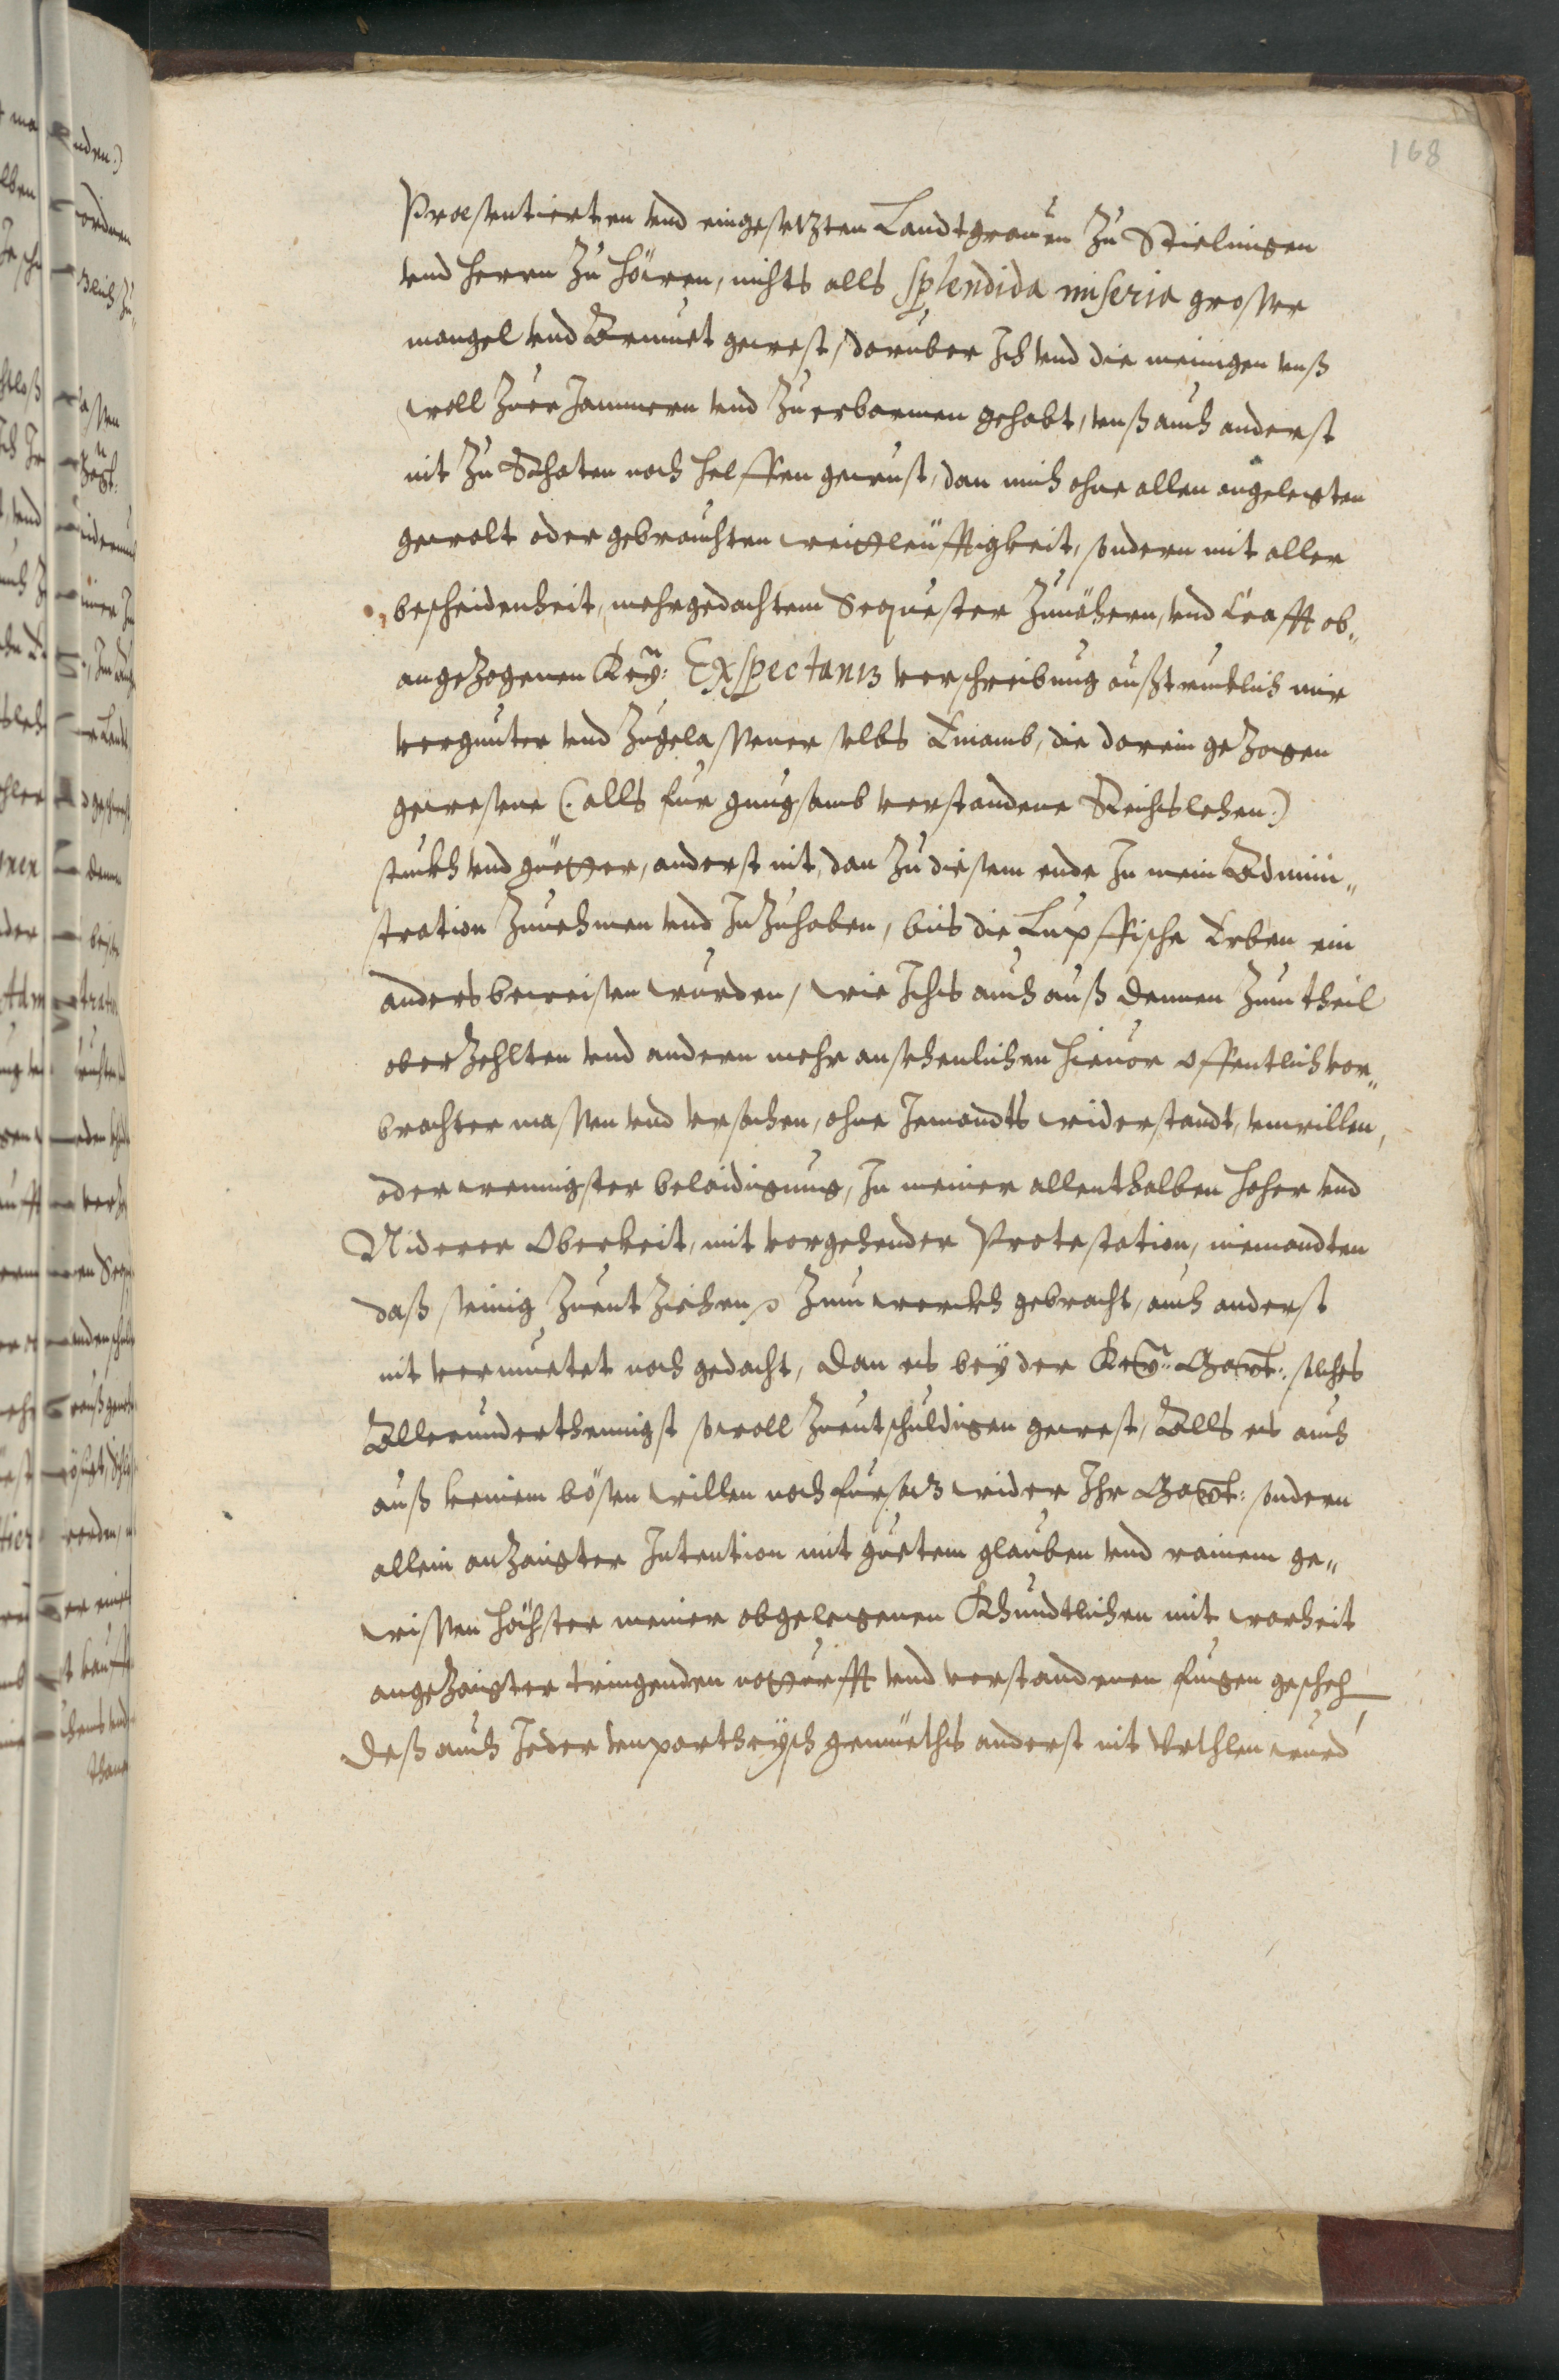 168
Præsentierten vnd eingesetzten Landtgrauen zu Stielingen
vnd Herrn zu Höwen, nichts alls splendida miseria grosser
mangel vnd Armuet gewest, darüber Ich vnd die meinigen vnß
woll zuer Jammern vnd zuerbarmen gehabt, vnß auch anderst
nit zu Rhaten noch helffen gewust, dan mich ohne allen angelegten
gewalt oder gebrauchten weitleüffigkeit, sondern mit aller
bescheidenheit, mehrgedachtem Sequester zunähern, vnd Crafft ob„
angezogenen Key: Exspectantz verschreibung außtrucklich mir
vergunter vnd zugelassener selbs Einamb, die darein gezogen
gewesene (: alls für gnugsamb verstandene Reichslehen:)
stuckh vnd güetter, anderst nit, dan zu diesem ende In mein Admini„
stration zunehmen vnd Inzuhaben, bis die Lupffische Erben ein
anders beweisen wurden, wie Ichs auch auß dennen zum theil
oberzehlten vnd andern mehr ansehenlichen hieuor offentlich vor„
brachter massen vnd vrsachen, ohne Jemandts widerstandt, vnwillen,
oder wenigster belaidigung, In meiner allenthalben hoher vnd
Niderer Oberkeit, mit vorgehender Protestation, niemandten
daß seinig zuentziehen zum werckh gebracht, auch anderst
nit vermuetet noch gedacht, dan es bey der Key: May: solches
Allerunderthenigst sowoll zuentschuldigen gewest, Alls es auch
auß keinem bösen willen noch fürsatz wider Ihr May: sondern
allein anzaigter Intention mit guetem glauben vnd rainem ge„
wissen höchster meiner obgelegenen Khundtlichen mit warheit
angezaigter tringenden notturfft vnd verstandenen fuegen gescheh
Deß auch Jeder vnpartheysch gemüeths anderst nit Vrthlen wurd